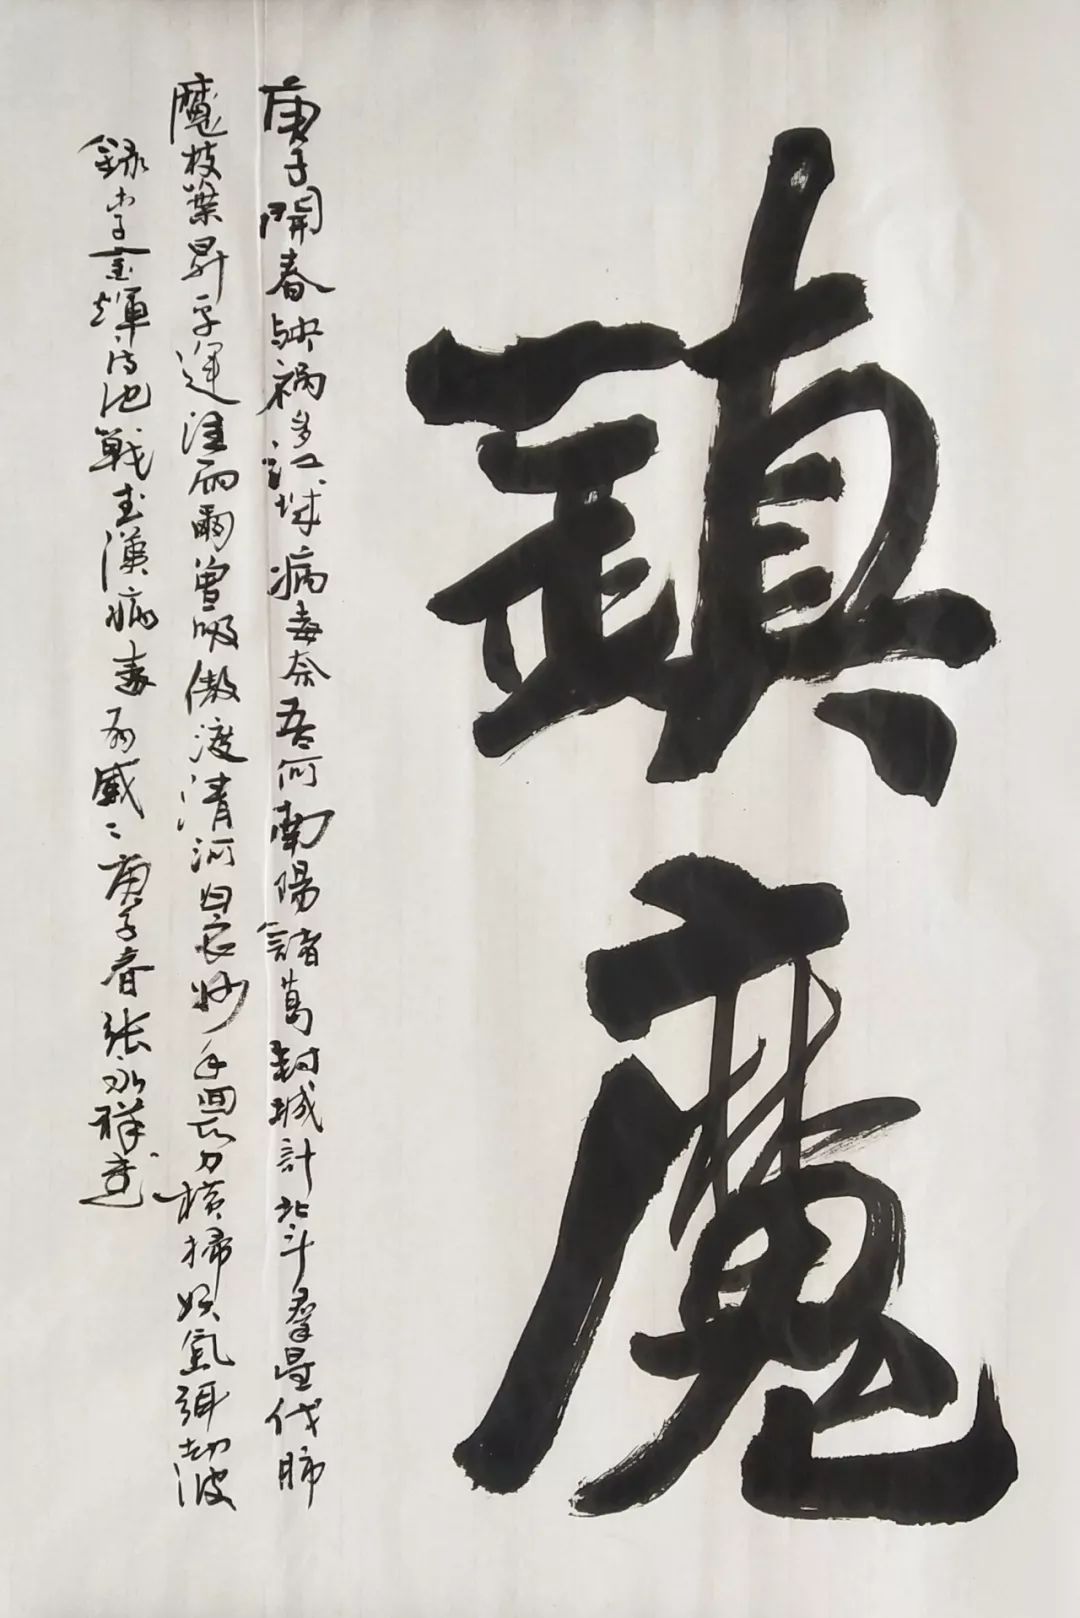 鎮魔
庚子開春映禍多江城病毒奈吾何南陽諸葛封城計北斗群星伐肺
魔枝葉昇平運洼雨曾吸傲渡清河良妙手回力橫掃妖氛弭劫波
錄李金輝詩池戰武漢病毒有感庚子春張永祥書